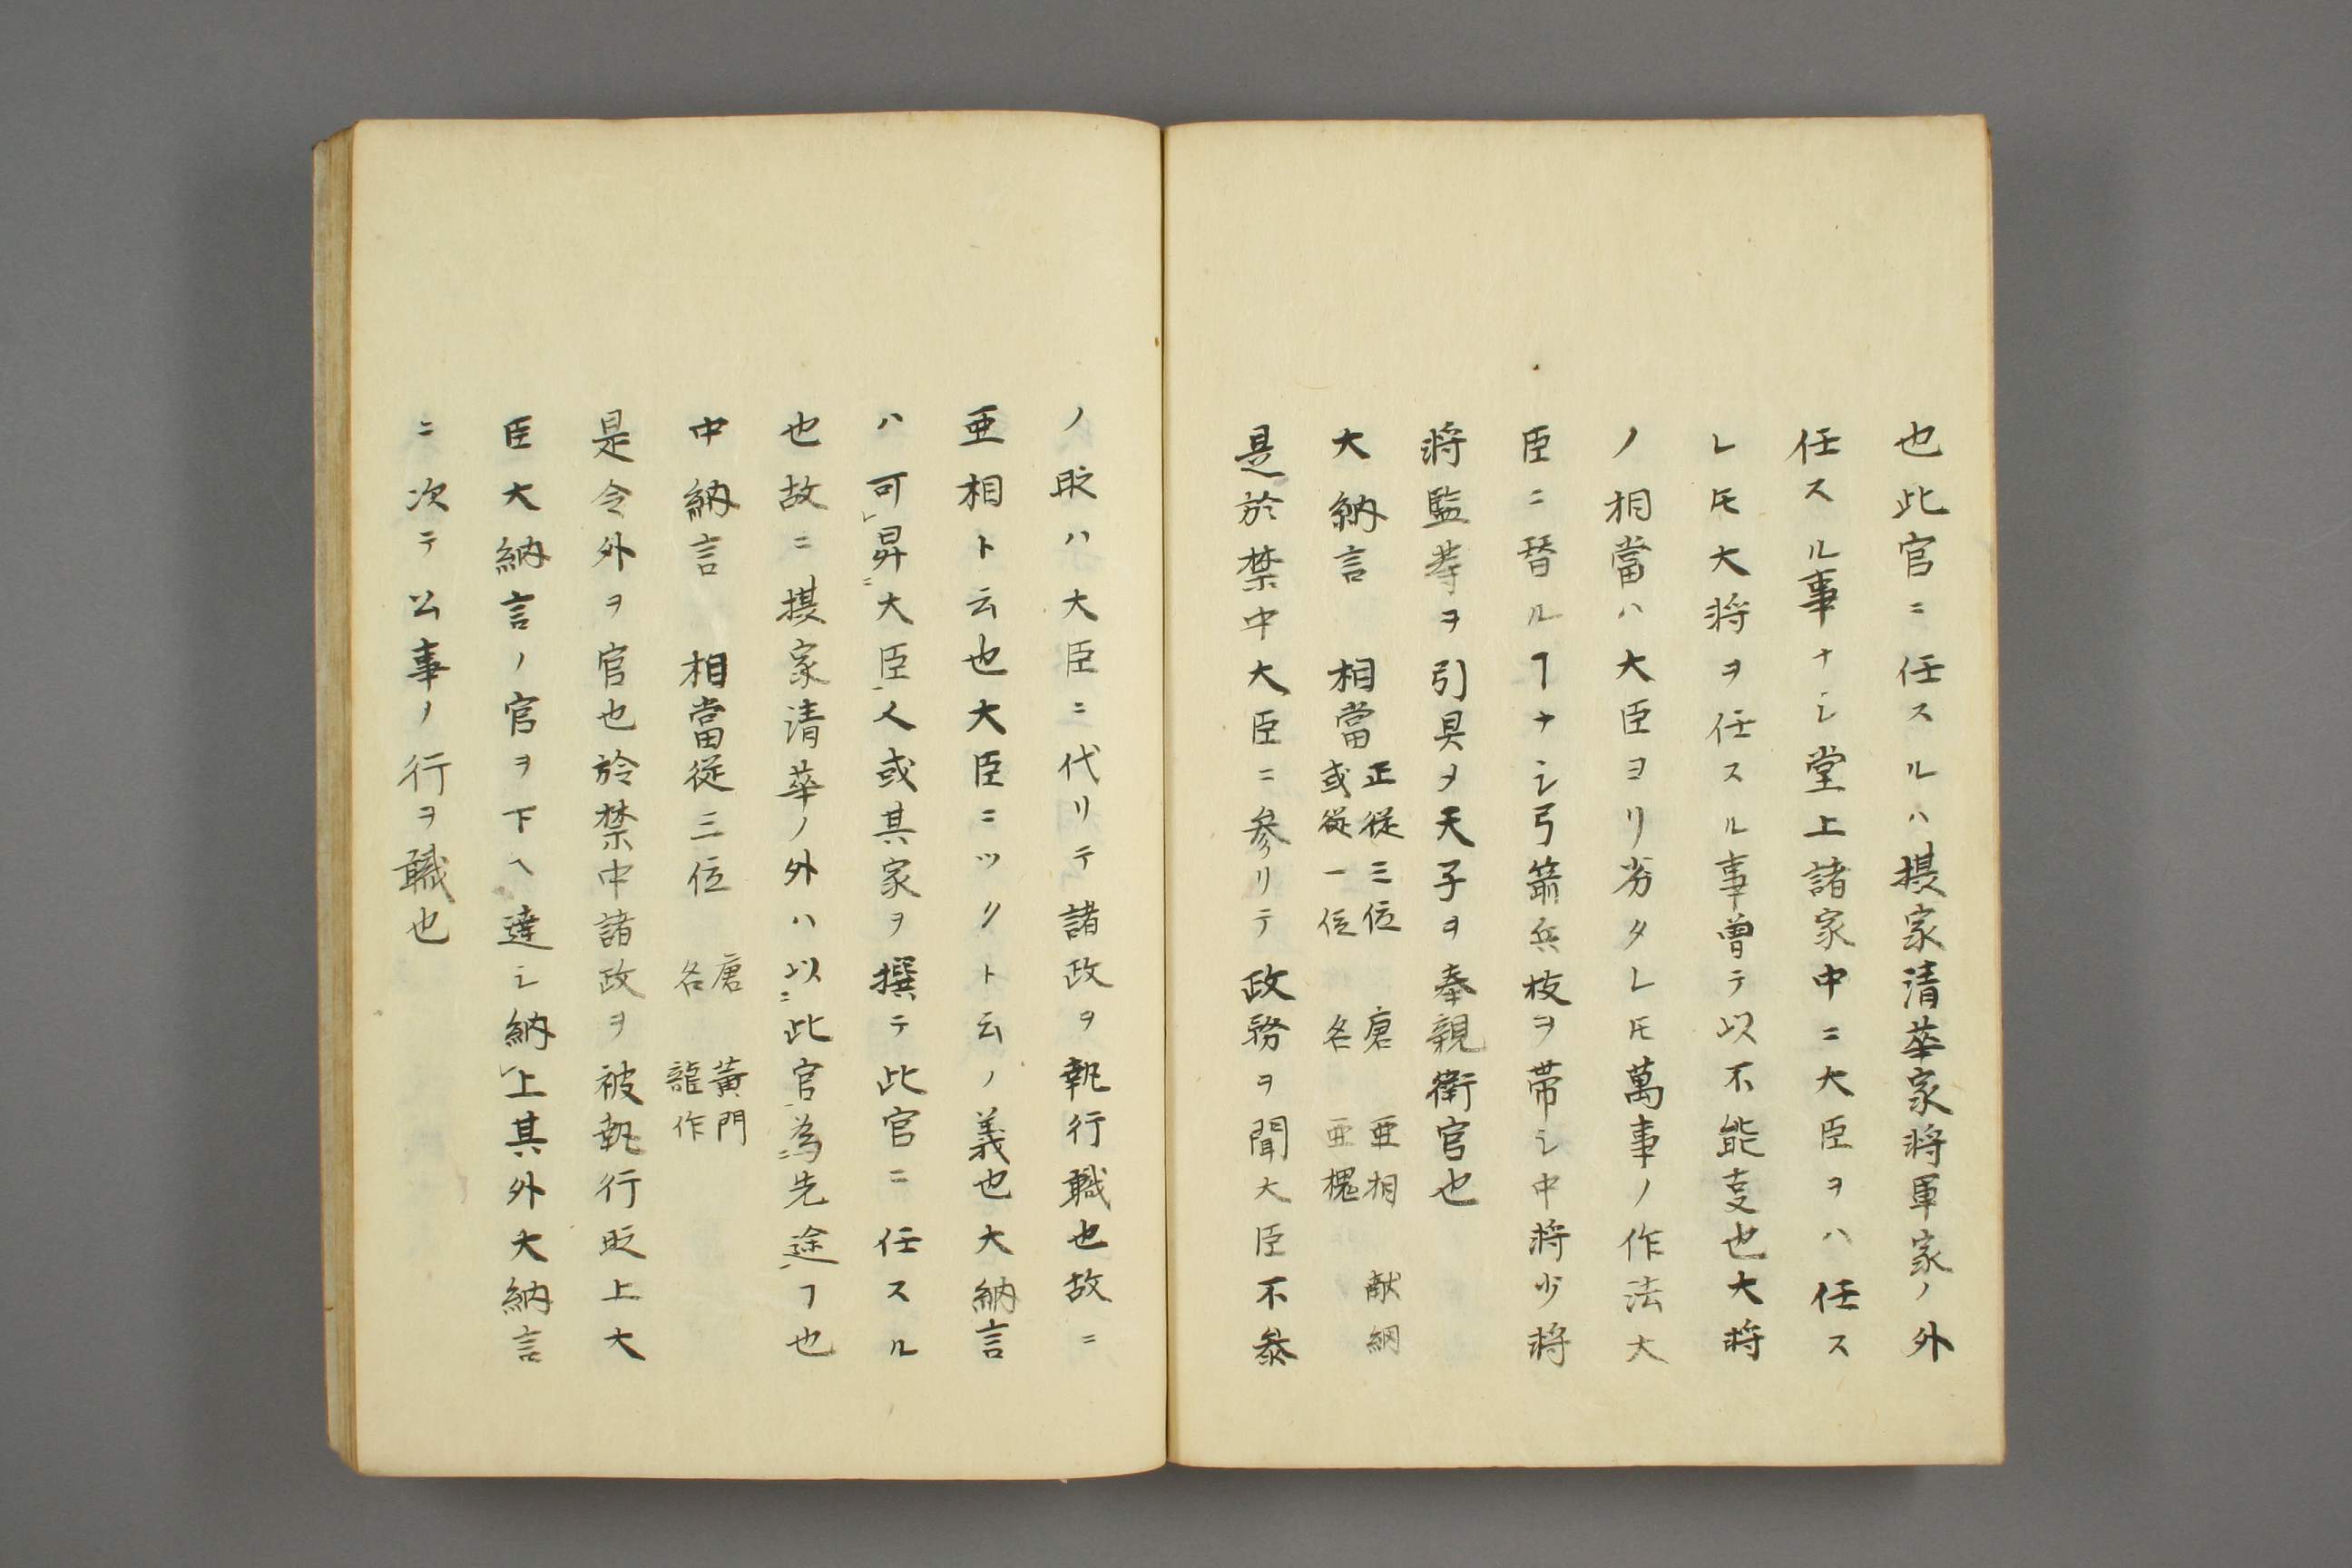 也此官ニ任スルハ摂家清華家将軍家ノ外
任スル事ナシ堂上諸家中ニ大臣ヲハ任ス
レ𪜈大将ヲ任スル事曽テ以不能支也大将
ノ相當ハ大臣ヨリ劣タレ𪜈萬事ノ作法大
臣ニ替ルヿナシ弓箭兵杖ヲ帯シ中将少将
将監等ヲ引具メ天子ヲ奉親衛官也
大納言 相當 正従三位 或従一位 唐名 亜相 亜槐 献納
是於禁中大臣ニ参リテ政務ヲ聞大臣不参
ノ㫖ハ大臣ニ代リテ諸政ヲ執行職也故ニ
亜相ト云也大臣ニツクト云ノ義也大納言
ハ可昇ニ大臣人或其家ヲ撰テ此官ニ任スル
也故ニ摂家清華ノ外ハ以ニ此官為ニ先途ヿ也
中納言 相當従三位 唐名 黄門 龍作
是令外ヲ官也於禁中諸政ヲ被執行㫖上大
臣大納言ノ官ヲ下ヘ達シ納上其外大納言
ニ次テ公事ノ行ヲ職也